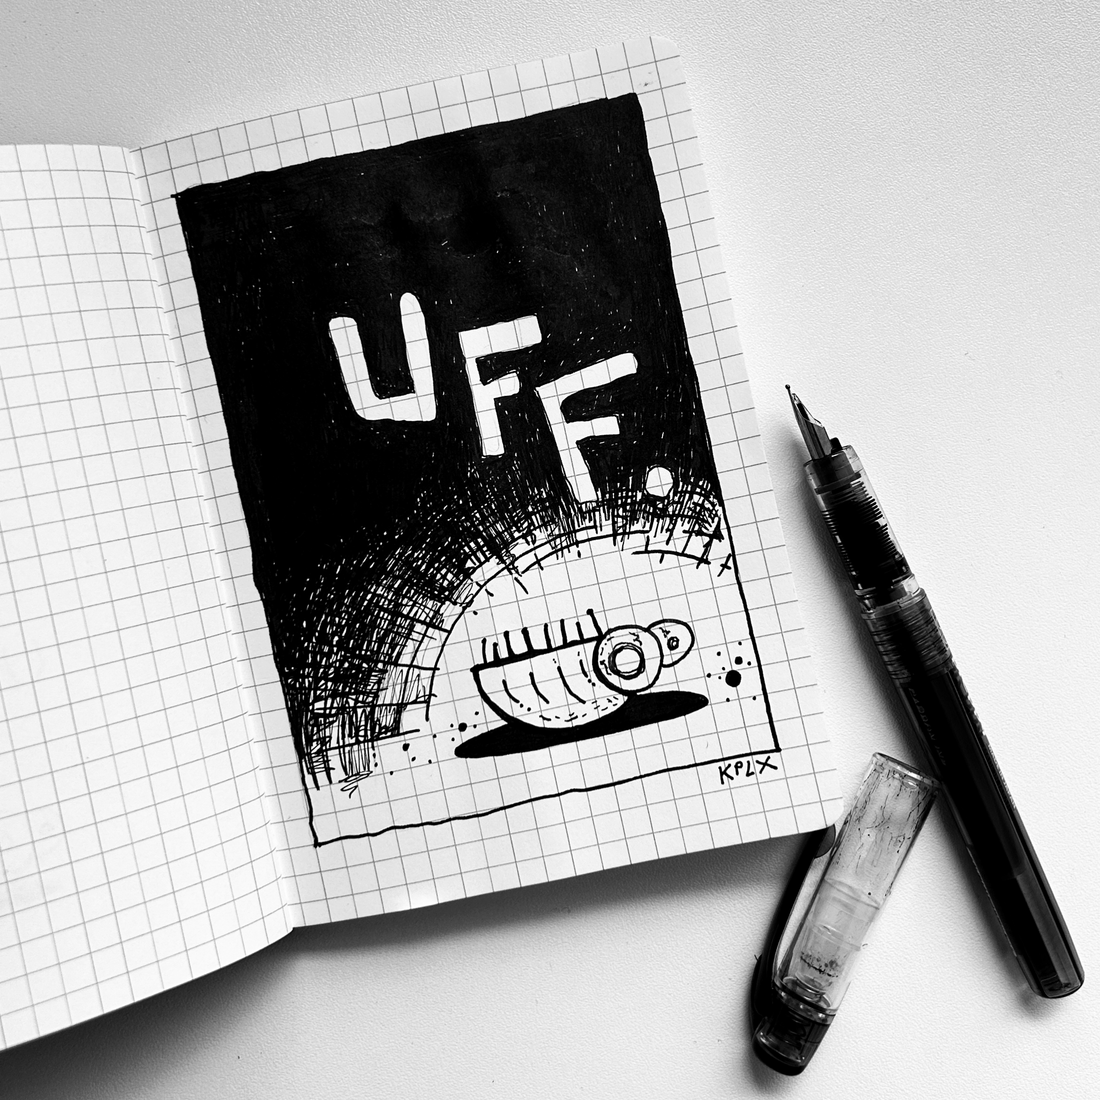 UFF.
KPLX